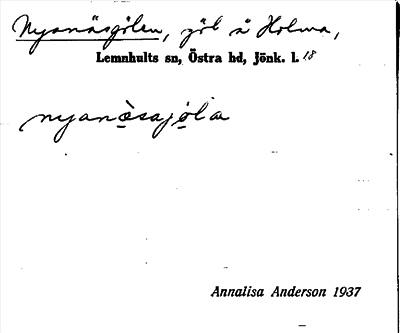 Nyanäsgölen, göl å Holma,
Lemnhults sn, Östra hd, Jönk. l. 18
nyanäsajöla
Annalisa Anderson 1937